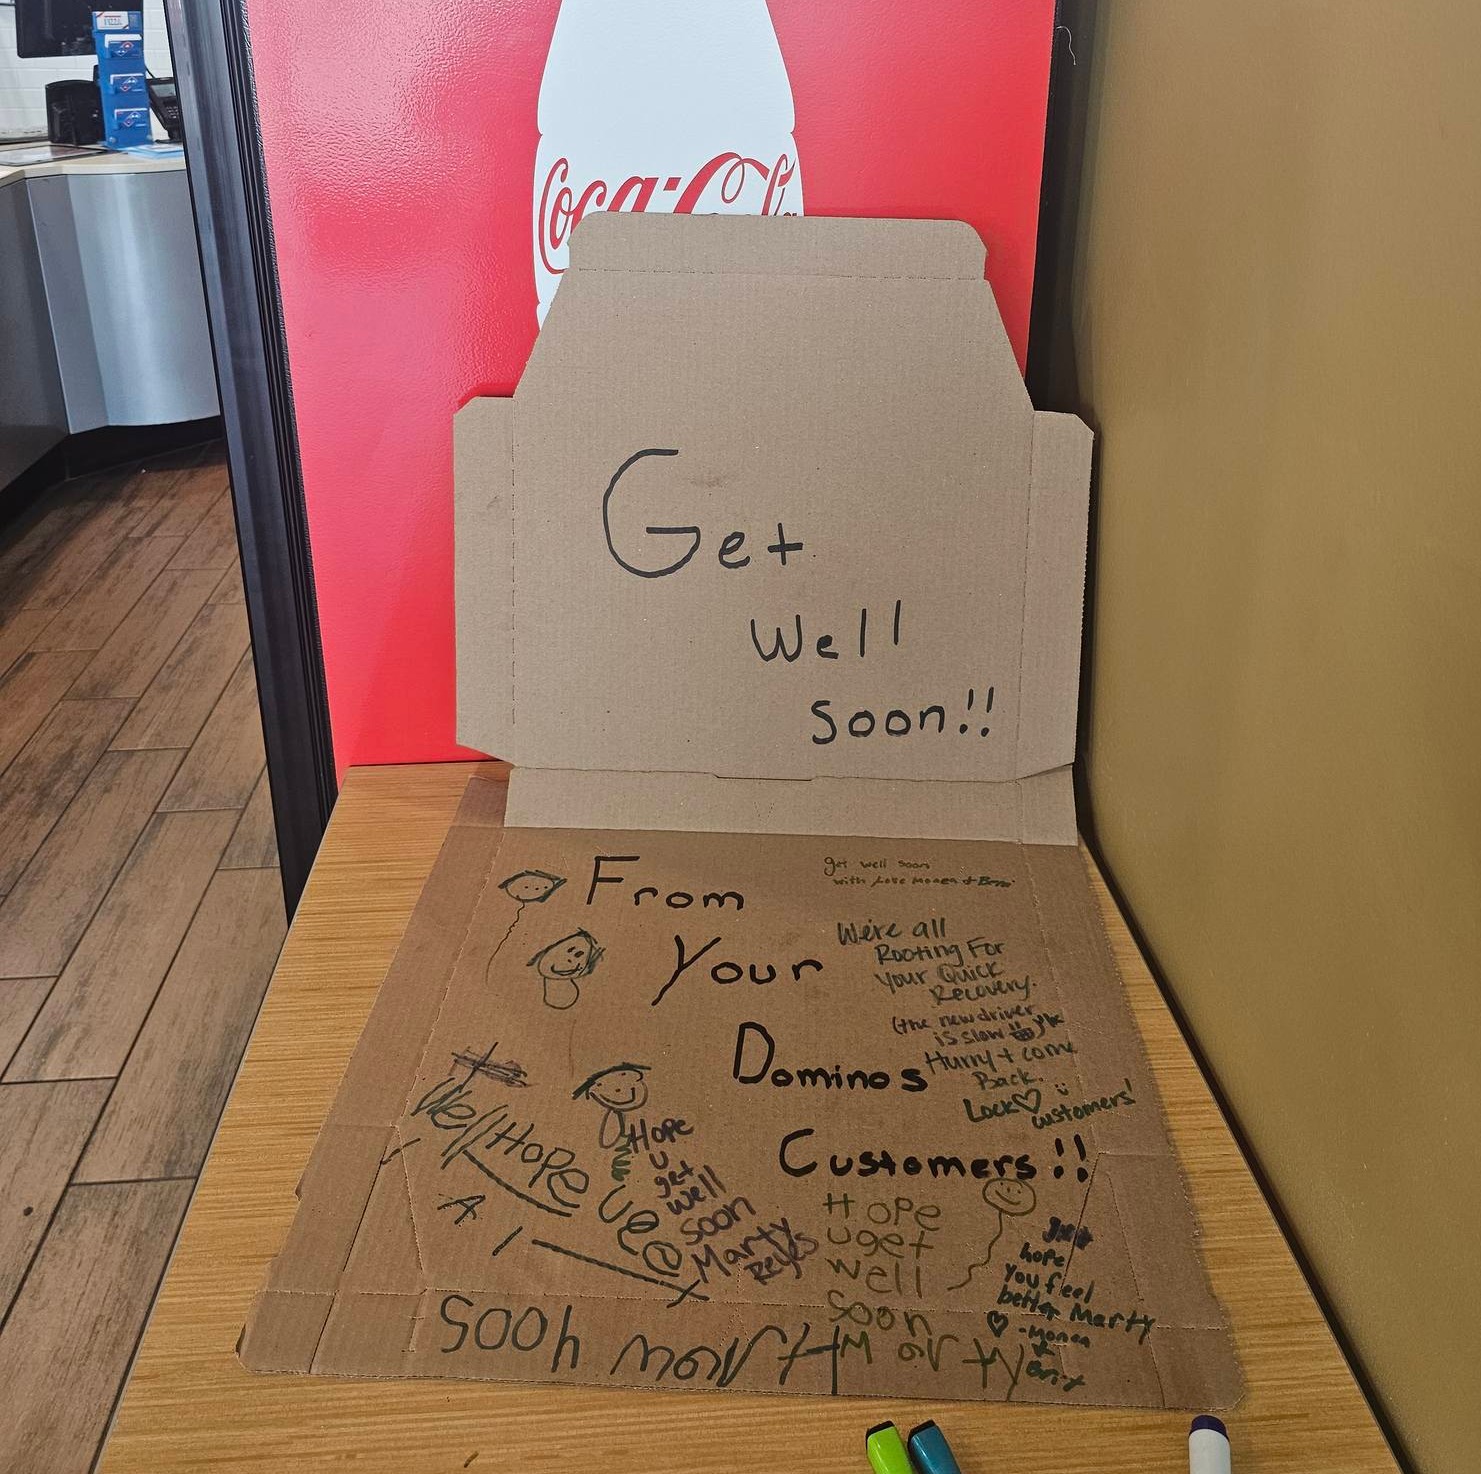 PIZZA
Coca-Cola
Get
Well
Soon!!
From
Your
Dominos
Customers!!
get well soon
with Love
We're all
Rooting For
Your Quick
Recovery.
(the new driver
is slow
Hurry + come
Back.
customers'
Well Hope
Hope
u
get
well
soon
Marty
Reyes
Hope
u get
well
soon
hope
you feel
better Marty